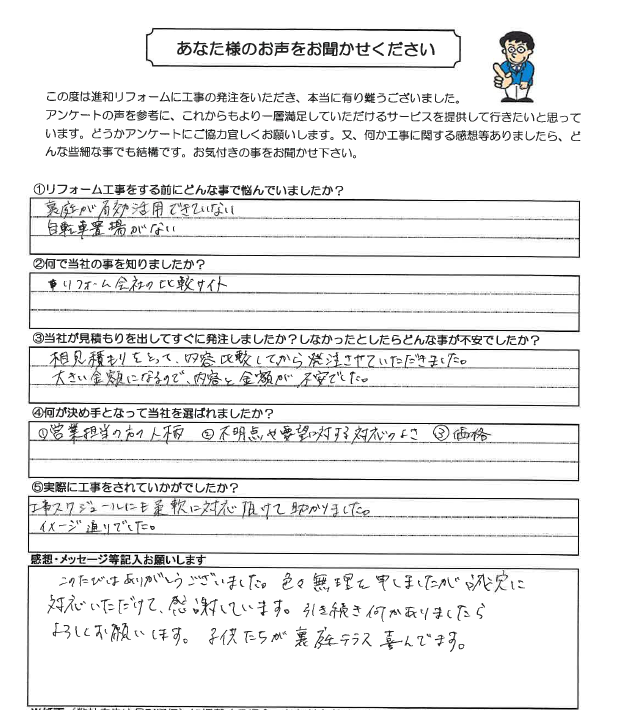 あなた様のお声をお聞かせください
この度は進和リフォームに工事の発注をいただき、本当に有り難うございました。
アンケートの声を参考に、これからもより一層満足していただけるサービスを提供して行きたいと思って
います。どうかアンケートにご協力宜しくお願いします。又、何か工事に関する感想等ありましたら、ど
んな些細な事でも結構です。お気付きの事をお聞かせ下さい。
①リフォーム工事をする前にどんな事で悩んでいましたか？
裏庭が有効活用できていない
自転車置場がない
②何で当社の事を知りましたか？
リフォーム会社の比較サイト
③当社が見積もりを出してすぐに発注しましたか？しなかったとしたらどんな事が不安でしたか？
相見積もりをとって、内容比較してから発注させていただきました。
大きい金額になるので、内容と金額が不安でした。
④何が決め手となって当社を選ばれましたか？
①営業担当の方の人柄 ②不明点や要望に対する対応のよさ ③価格
⑤実際に工事をされていかがでしたか？
工事スケジュールにも柔軟に対応頂けて助かりました。
イメージ通りでした。
感想・メッセージ等記入お願いします
このたびはありがとうございました。色々無理を申しましたが誠実に
対応いただけて、感謝しています。引き続き何かありましたら
よろしくお願いします。子供たちが裏庭テラス喜んでます。